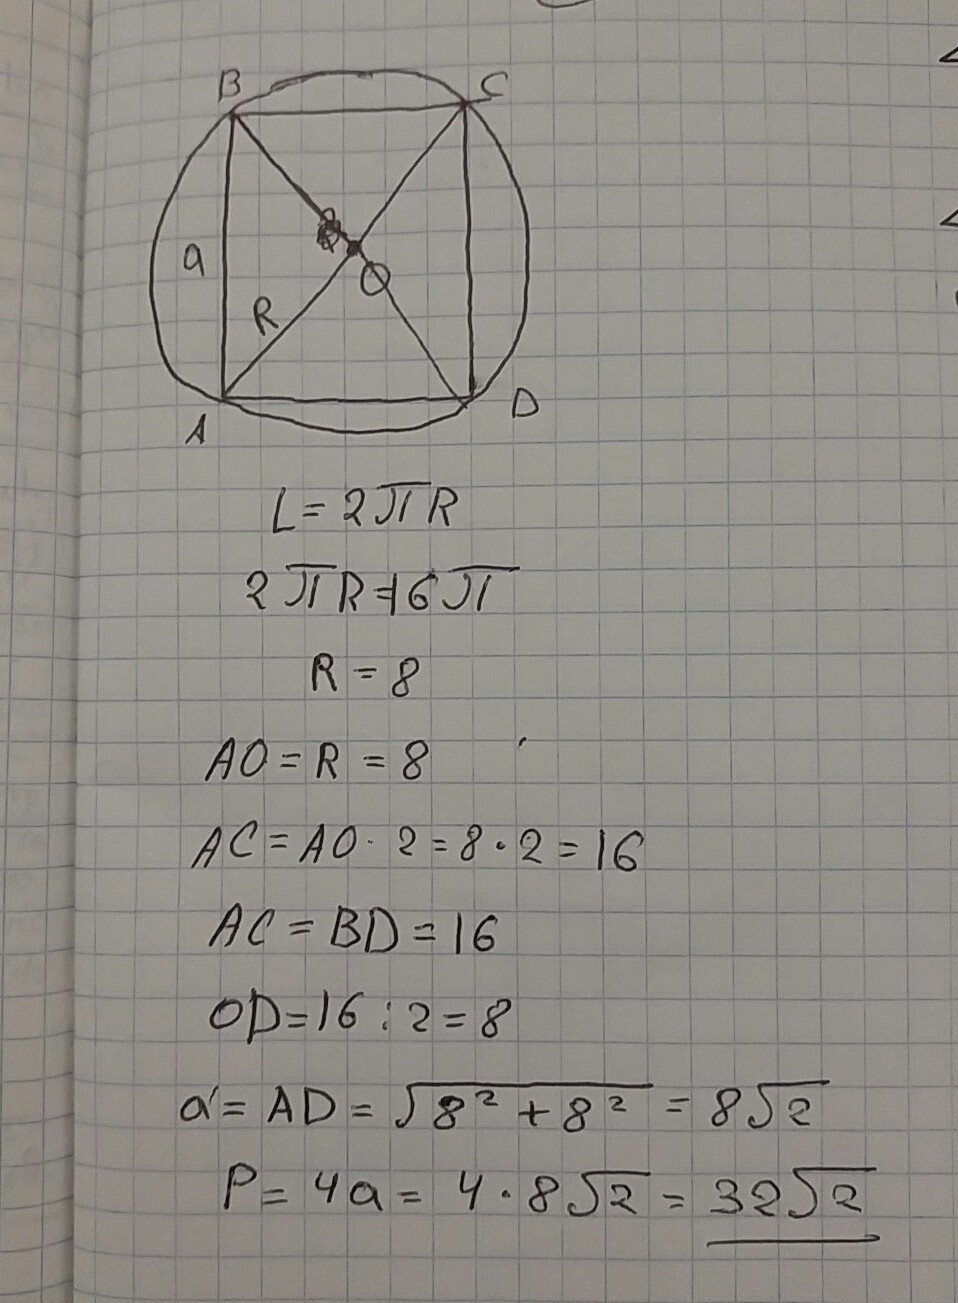 B C
a
O
R
A D
L = 2πR
2πR = 16π
R = 8
AO = R = 8
AC = AO · 2 = 8 · 2 = 16
AC = BD = 16
OD = 16 : 2 = 8
a = AD = √8² + 8² = 8√2
P = 4a = 4 · 8√2 = 32√2